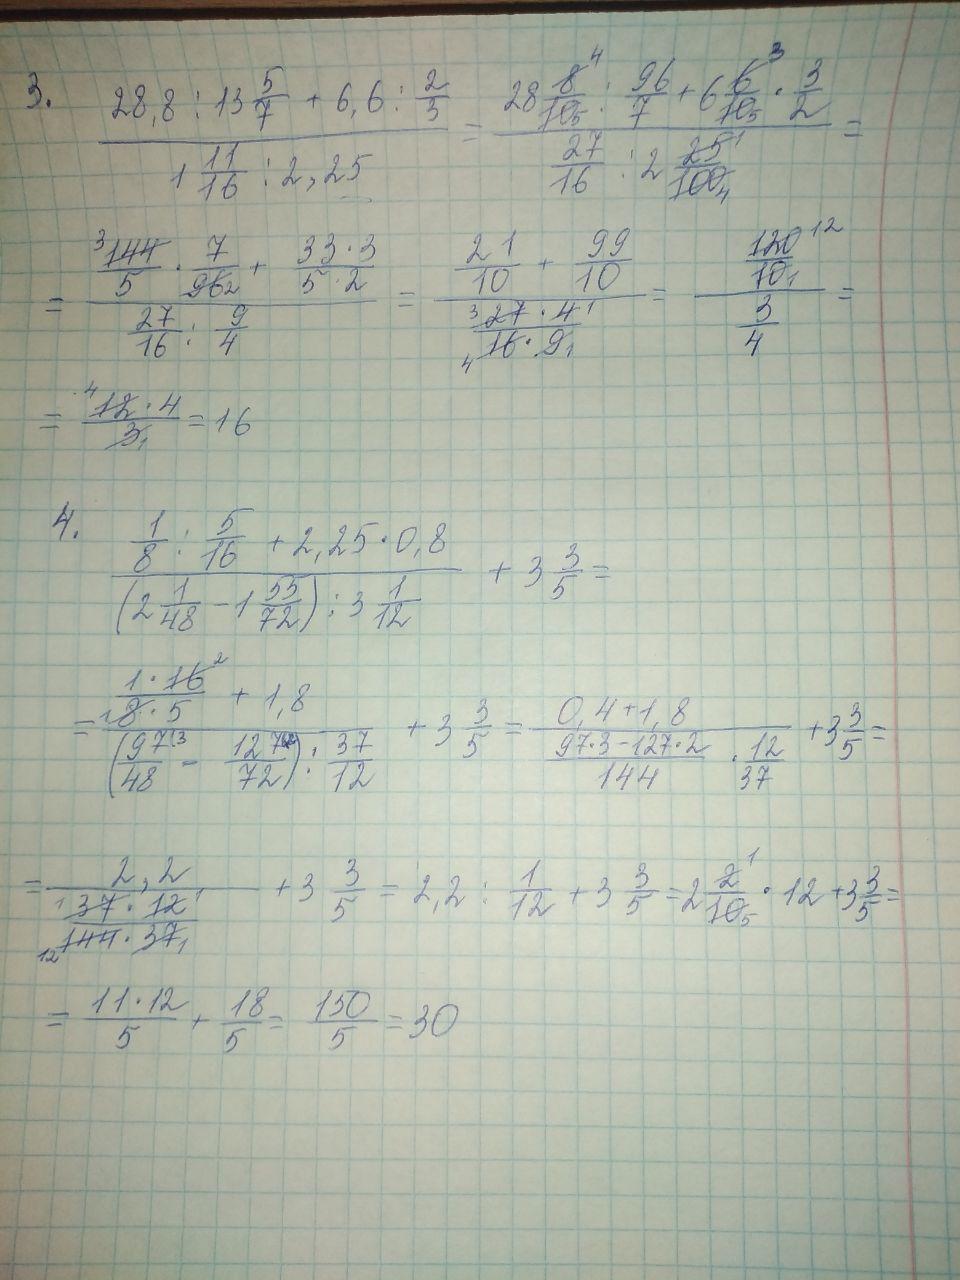 3. (28,8 : 13 5/7 + 6,6 : 2/3) / (1 11/16 : 2,25) = (28 8/10 4 5 : 96/7 + 6 6/10 3 5 · 3/2) / (27/16 : 2 25/100 1 4) =
= (3 144/5 · 7/96 2 + 33·3/5·2) / (27/16 : 9/4) = (21/10 + 99/10) / (3 27·4 1 / 4 16·9 1) = (120 12/10 1) / (3/4) =
= 4 12·4 / 3 1 = 16
4. (1/8 : 5/16 + 2,25·0,8) / ((2 1/48 - 1 55/72) : 3 1/12) + 3 3/5 =
= (1·16 2 / 1 8·5 + 1,8) / ((97/48 (3 - 127/72 (2) : 37/12) + 3 3/5 = (0,4+1,8) / ((97·3-127·2)/144 · 12/37) + 3 3/5 =
= 2,2 / (1 37·12 1 / 12 144·37 1) + 3 3/5 = 2,2 : 1/12 + 3 3/5 = 2 2/10 1 5 · 12 + 3 3/5 =
= 11·12/5 + 18/5 = 150/5 = 30